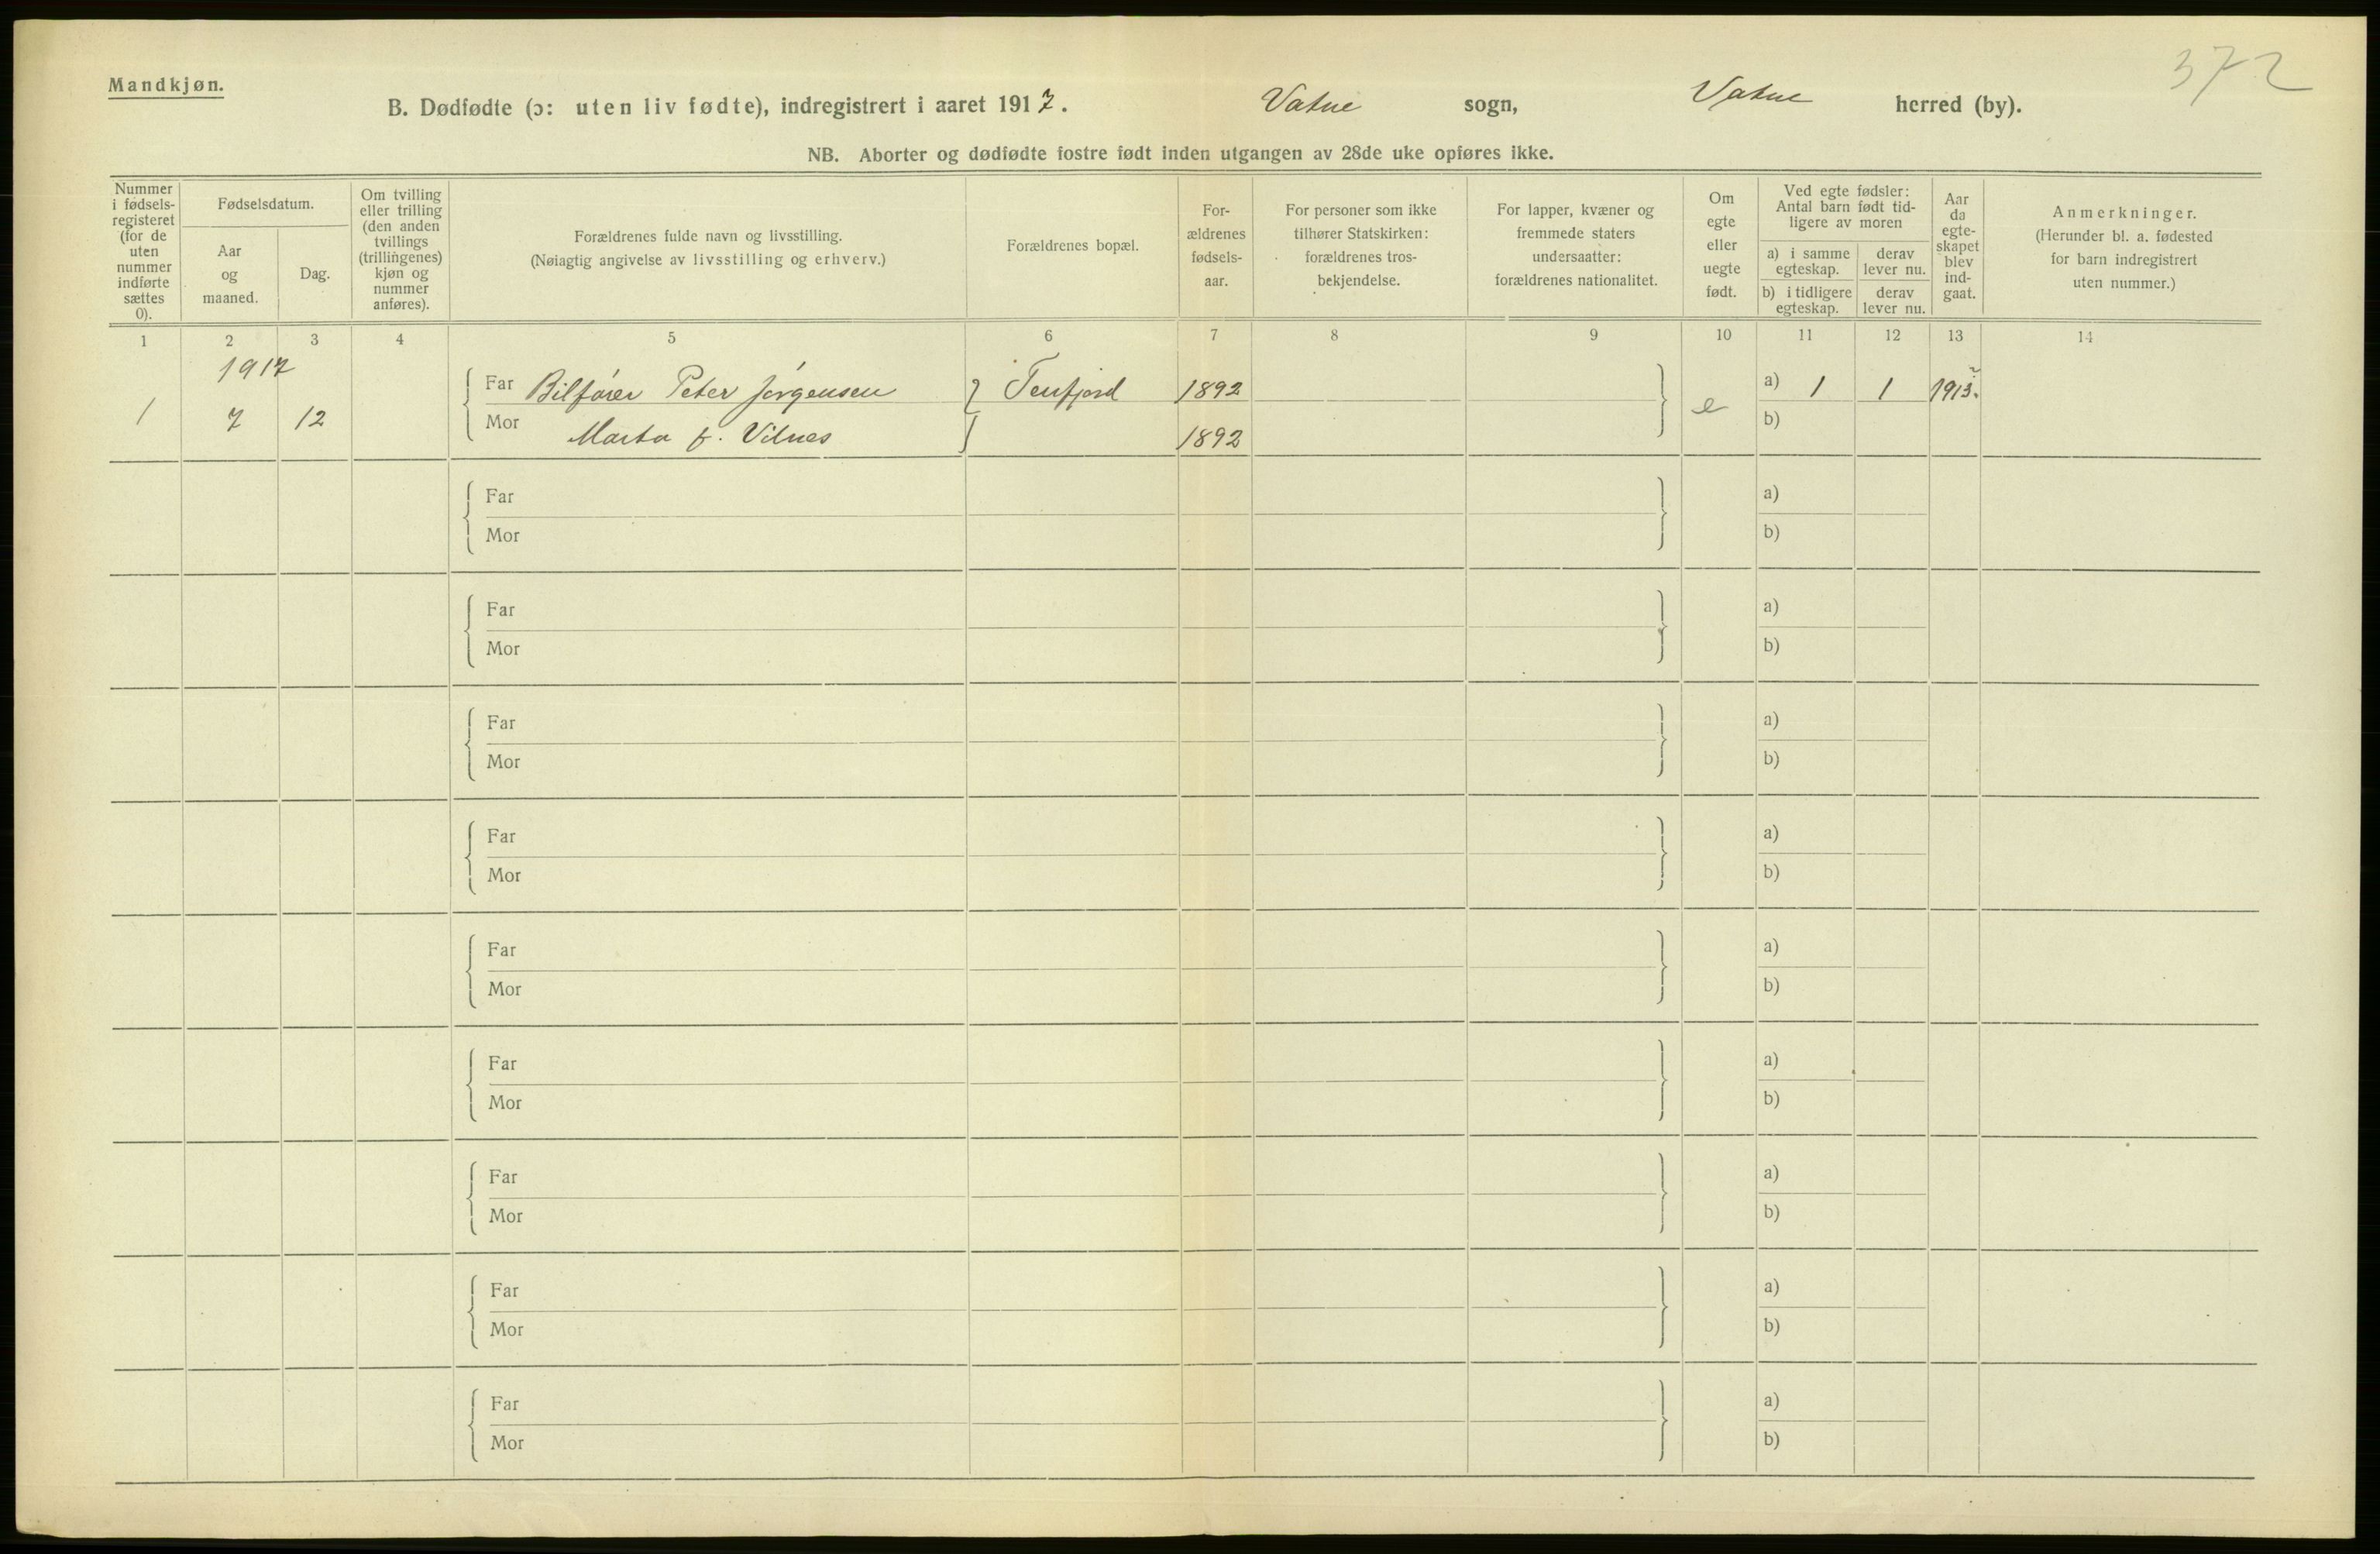 372
Mandkjøn.
B. Dødfødte (ɔ: uten liv fødte), indregistrert i aaret 1917. Vatne sogn, Vatne herred (by).
NB. Aborter og dødfødte fostre født inden utgangen av 28de uke opføres ikke.
Nummer
i fødsels-
registeret
(for de
uten
nummer
indførte
sættes
0).
Fødselsdatum.
Aar
og
maaned.
Dag.
Om tvilling
eller trilling
(den anden
tvillings
(trillingenes)
kjøn og
nummer
anføres).
Forældrenes fulde navn og livsstilling.
(Nøiagtig angivelse av livsstilling og erhverv.)
Forældrenes bopæl.
For-
ældrenes
fødsels-
aar.
For personer som ikke
tilhører Statskirken:
forældrenes tros-
bekjendelse.
For lapper, kvæner og
fremmede staters
undersaatter:
forældrenes nationalitet.
Om
egte
eller
uegte
født.
Ved egte fødsler:
Antal barn født tid-
ligere av moren
a) i samme
egteskap.
derav
lever nu.
b) i tidligere
egteskap.
derav
lever nu.
Aar
da
egte-
skapet
blev
ind-
gaat.
Anmerkninger.
(Herunder bl. a. fødested
for barn indregistrert
uten nummer.)
1 2 3 4 5 6 7 8 9 10 11 12 13 14
1917
Far Bilfører Peter Jørgensen Tenfjord 1892 a) 1 1 1913.
1 7 12 e
Mor Marta f. Vilnes 1892 b)
Far a)
Mor b)
Far a)
Mor b)
Far a)
Mor b)
Far a)
Mor b)
Far a)
Mor b)
Far a)
Mor b)
Far a)
Mor b)
Far a)
Mor b)
Far a)
Mor b)